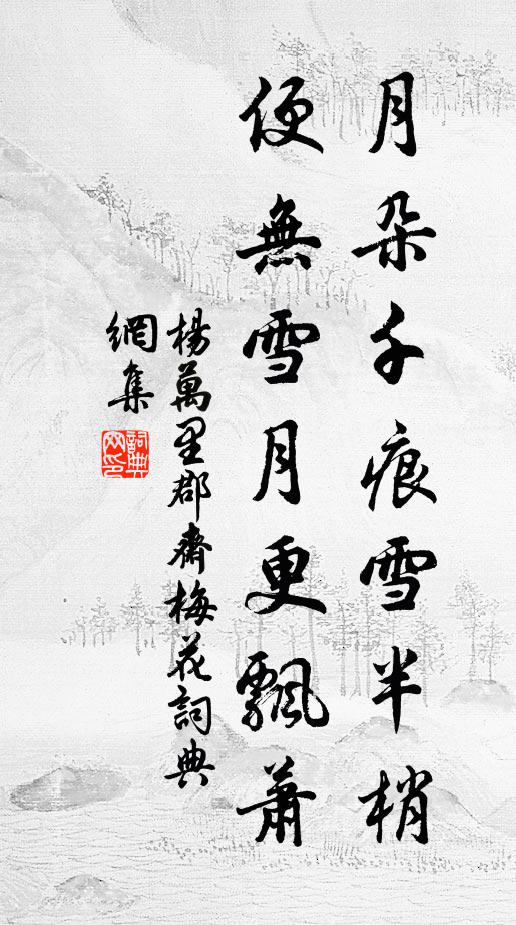 月朵千痕雪半梢
便無雪月更飄蕭
楊萬里郡齋梅花詞典
網集
詞典网印